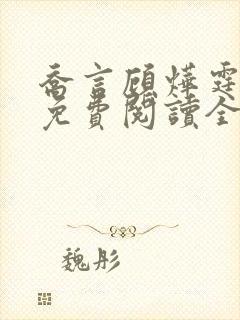 喬言顧燁霆
免費閱讀全
魏彤